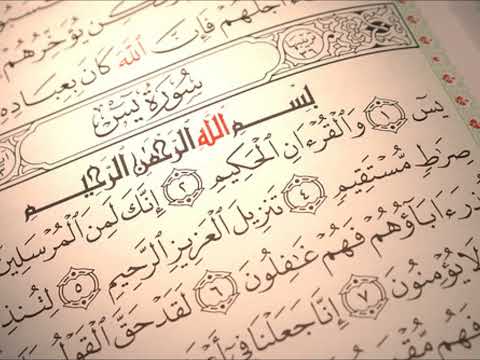 يُؤَخِّرُهُمْ
أَجَلُهُمْ فَإِنَّ ٱللَّهَ كَانَ بِعِبَادِهِ
سُورَةُ يسٓ
بِسْمِ ٱللَّهِ ٱلرَّحْمَٰنِ ٱلرَّحِيمِ
يسٓ ١ وَٱلْقُرْءَانِ ٱلْحَكِيمِ ٢ إِنَّكَ لَمِنَ ٱلْمُرْسَلِينَ
صِرَٰطٍ مُّسْتَقِيمٍ ٤ تَنزِيلَ ٱلْعَزِيزِ ٱلرَّحِيمِ ٥ لِتُنذِ
نذِرَ ءَابَآؤُهُمْ فَهُمْ غَٰفِلُونَ ٦ لَقَدْ حَقَّ ٱلْقَوْلُ
لَا يُؤْمِنُونَ ٧ إِنَّا جَعَلْنَا فِىٓ أَ
فَهُم مُّق